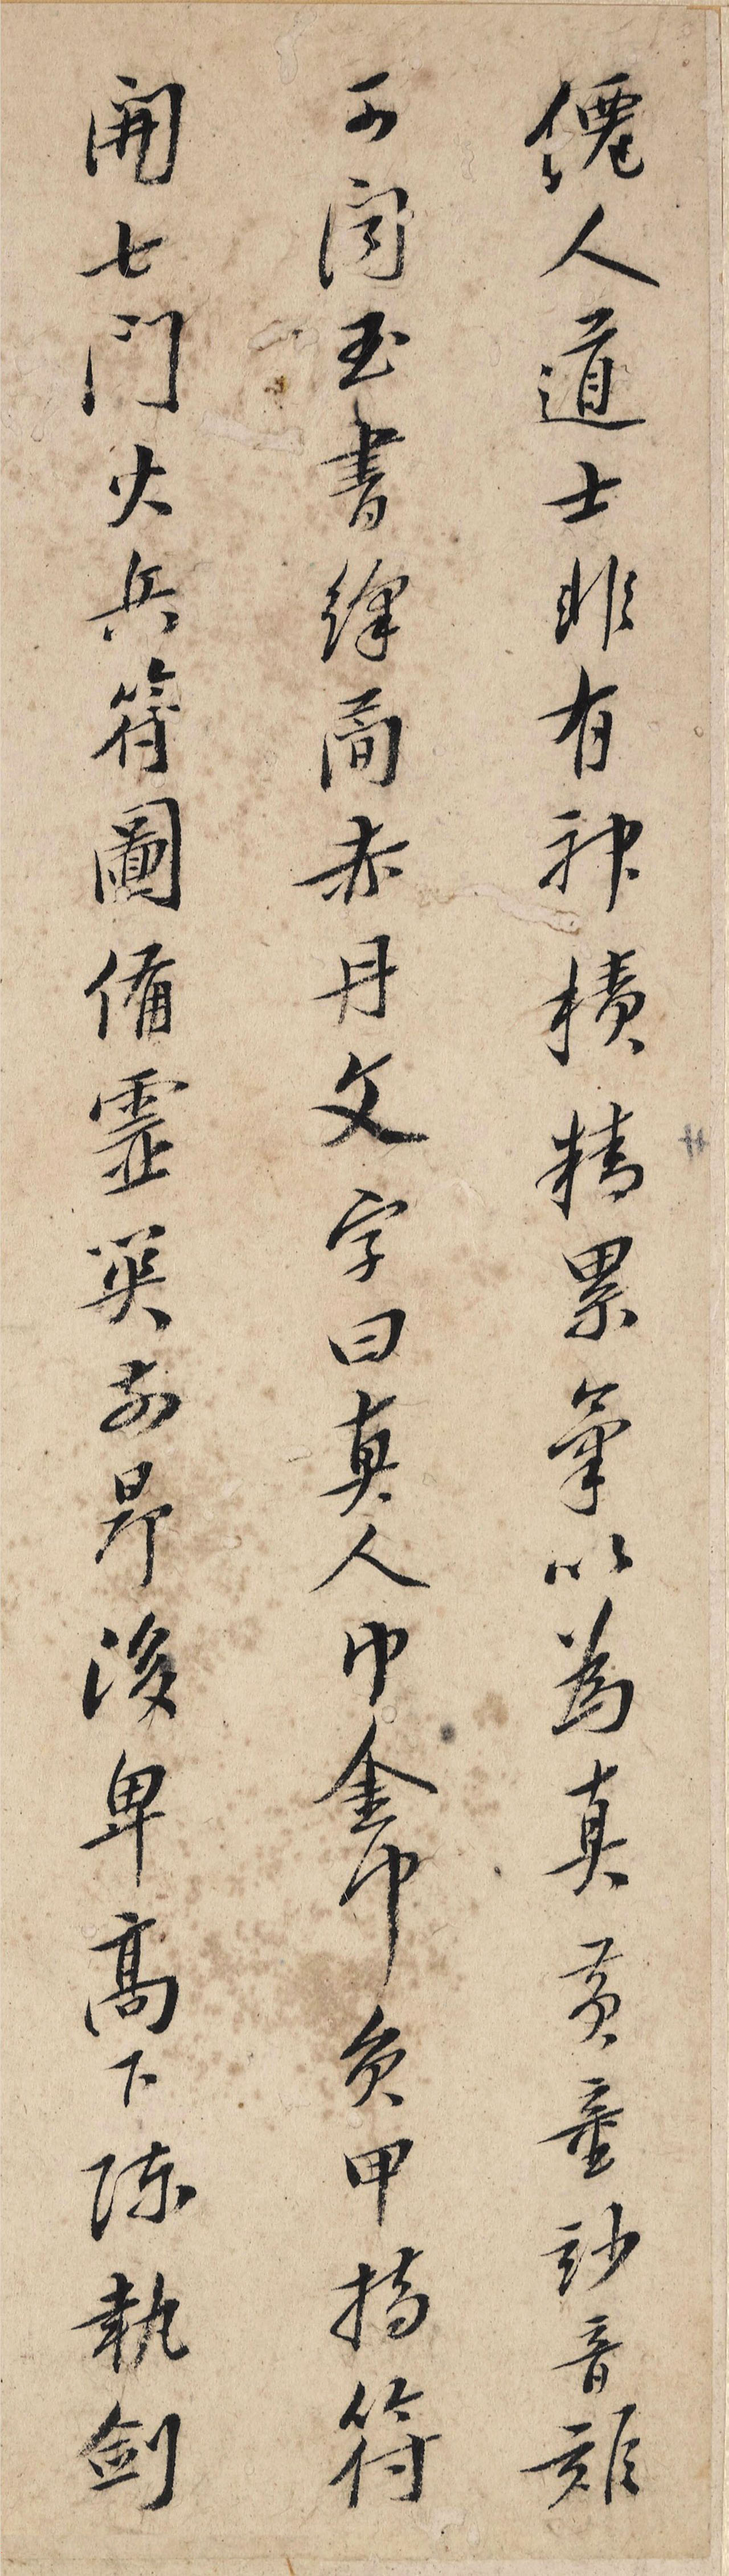 僊人道士非有神積精累氣以為真黃童妙音難
可聞玉書絳簡赤丹文字曰真人巾金巾負甲持符
開七門火兵符圖備靈關前昂後卑高下陳執劍